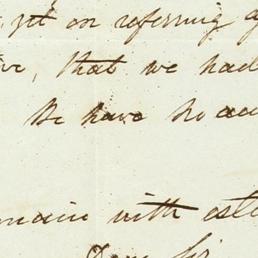 yet on referring
that we had
We have no
remain with este
Dear Sir